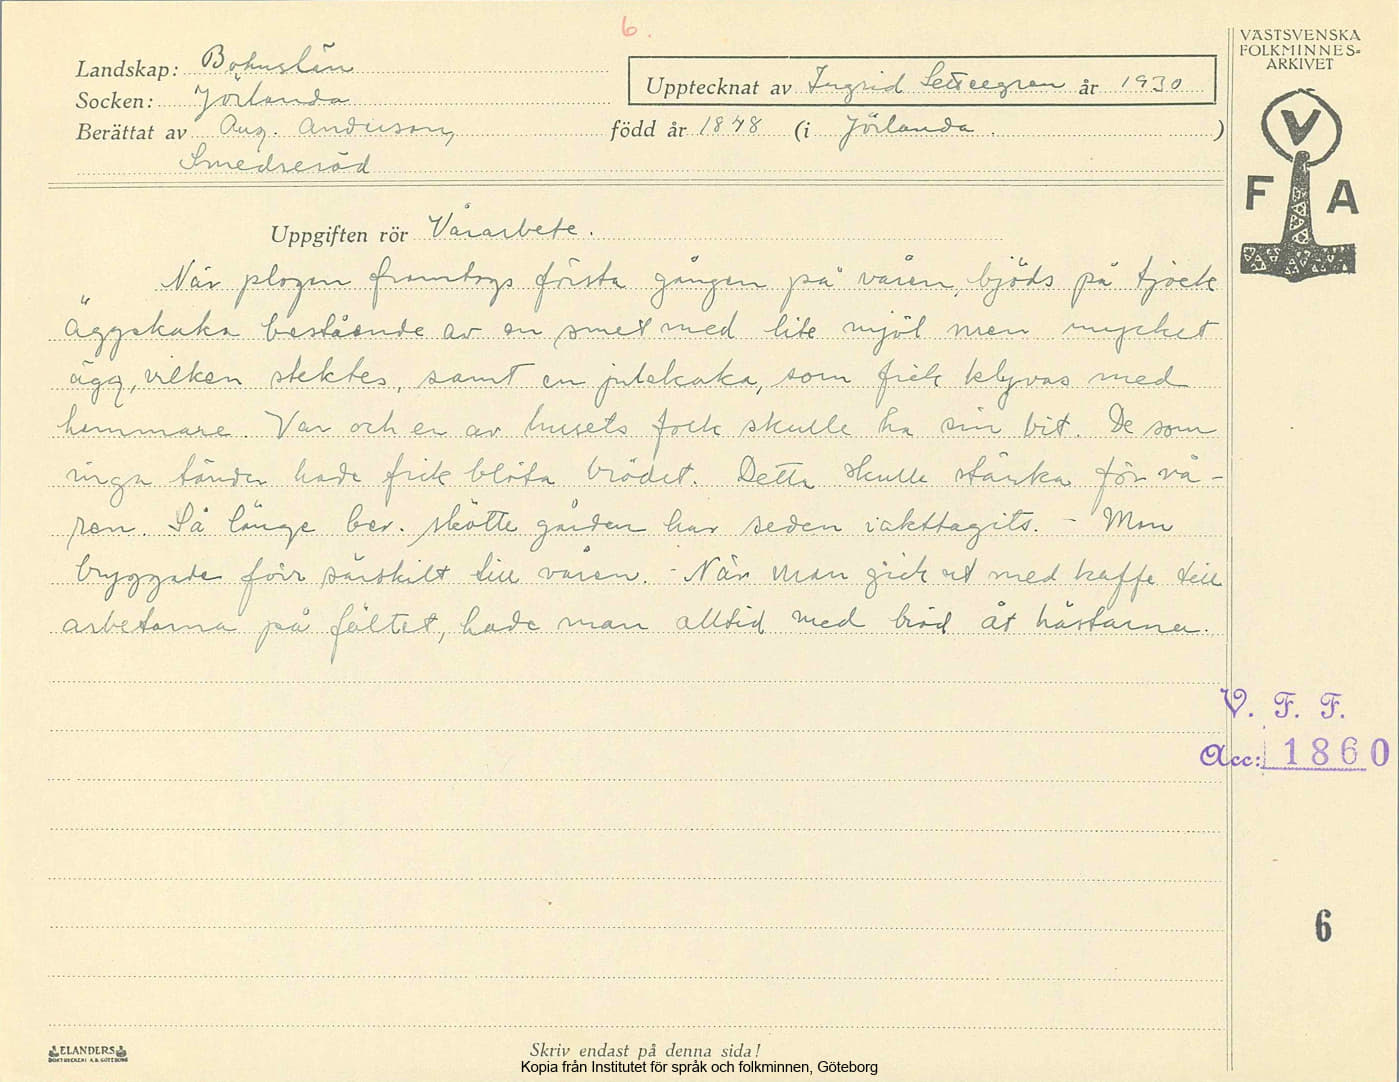 6.
VÄSTSVENSKA
FOLKMINNES=
ARKIVET
V
F A
Landskap: Bohuslän
Socken: Jörlanda
Upptecknat av Ingrid år 1930
Berättat av Aug. Anderson,
född år 1848 (i Jörlanda. )
Smedseröd
Uppgiften rör Vårarbete.
När plogen framtogs första gången på våren, bjöds på tjock
äggakaka bestående av en smet med lite mjöl men mycket
ägg, vilken stektes, samt en julekaka, som fick klyvas med
hammare. Var och en av husets folk skulle ha sin bit. De som
inga tänder hade fick blöta brödet. Detta skulle stärka för vå-
ren. Så länge ber. skötte gården har seden iakttagits. - Man
bryggade förr särskilt till våren. - När man gick ut med kaffe till
arbetarna på fältet, hade man alltid med bröd åt hästarna.
V. F. F.
Acc: 1860
6
ELANDERS
BOKTRYCKERI A.B. GÖTEBORG
Skriv endast på denna sida!
Kopia från Institutet för språk och folkminnen, Göteborg